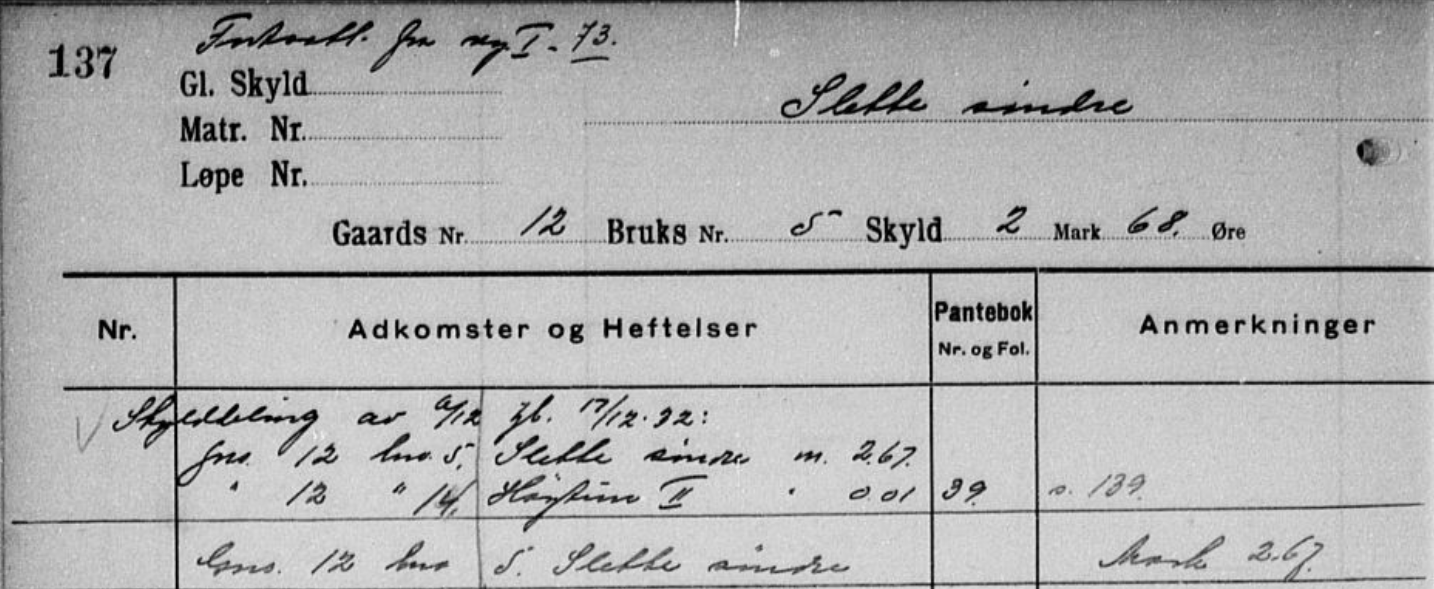 137
fra reg I - 73.
Gl. Skyld
Slette sindre
Matr. Nr.
Løpe Nr.
Gaards Nr. 12 Bruks Nr. 5 Skyld 2 Mark 68. Øre
Nr. Adkomster og Heftelser Pantebok Nr. og Fol. Anmerkninger
Skylddeling av 6/12 tgl. 17/12.32:
gno. 12 bno. 5. Slette sindre m. 2.67.
" 12 " 14. II " 0.01 39. s. 139.
Gno. 12 bno 5. Slette sindre Mark 2.67.